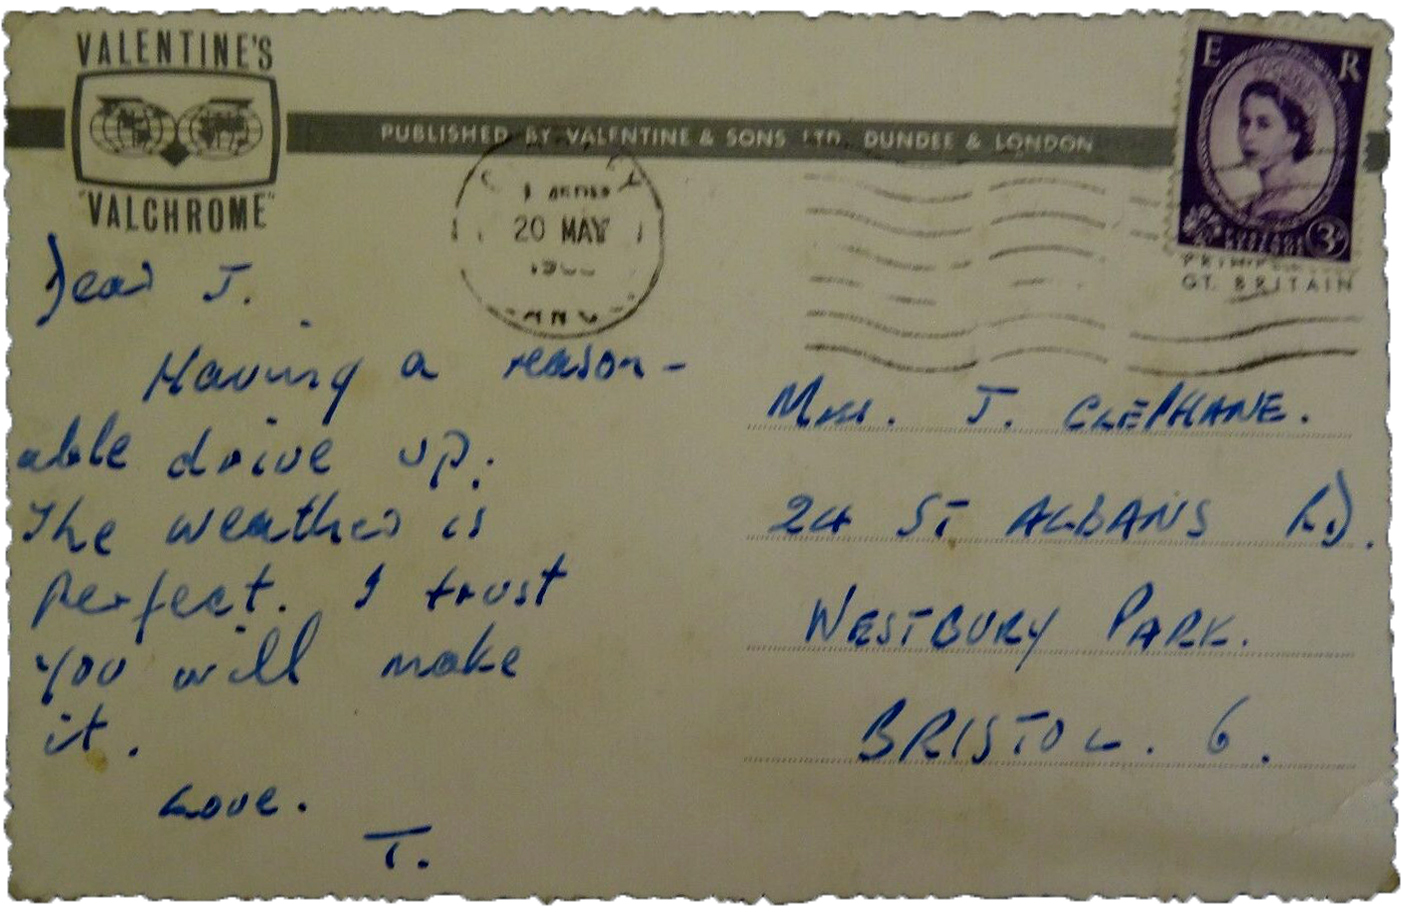 VALENTINE'S
"VALCHROME"
PUBLISHED BY VALENTINE & SONS LTD. DUNDEE & LONDON
E R
3D
20 MAY
GT. BRITAIN
Dear J.
Having a reason-
able drive up.
The weather is
perfect. I trust
you will make
it.
Love.
T.
J. CLEPHANE.
24 ST ALBANS RD.
WESTBURY PARK.
BRISTOL. 6.